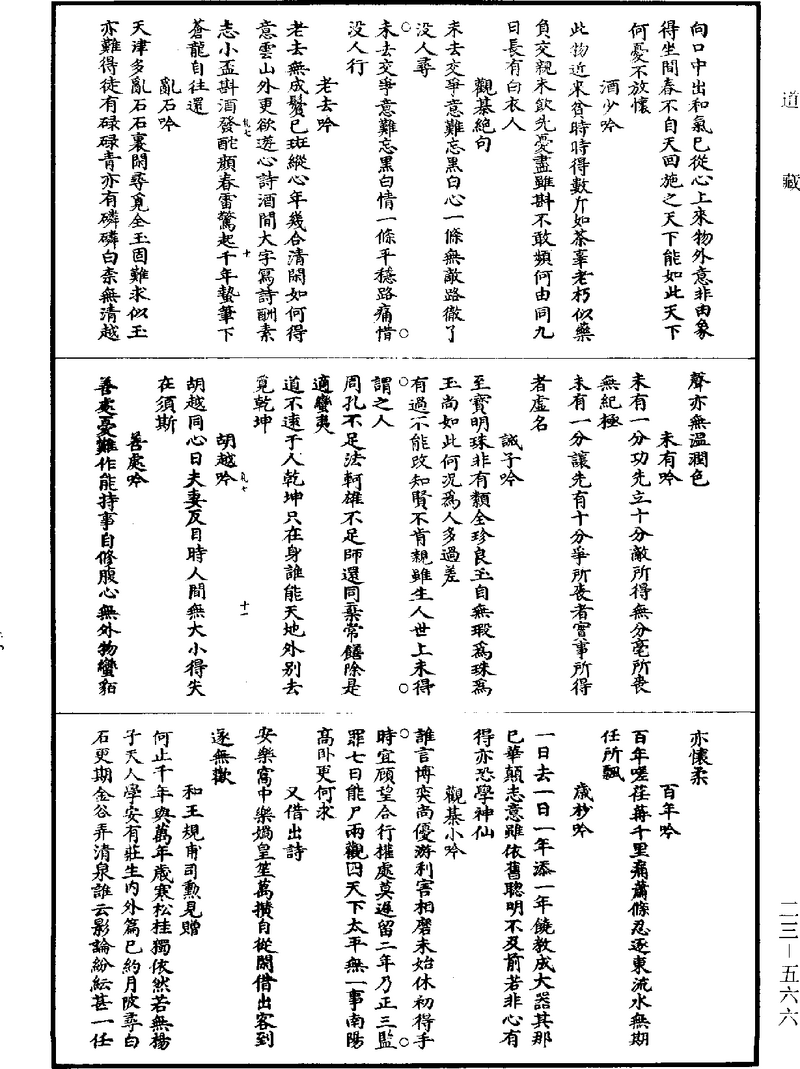 道藏
向口中出和氣已從心上來物外意非由象
得坐間春不自天回施之天下能如此天下
何憂不放懷
酒少吟
此物近來貧時時得數斤如茶辜老朽似藥
負交親未飲先憂盡雖斟不敢頻何由同九
日長有白衣人
觀棊絕句
未去交爭意難忘黑白心一條無敵路徹了
没人尋
未去交爭意難忘黑白情一條平穩路痛惜
没人行
老去吟
老去無成鬢已斑縱心年幾合清閑如何得
意雲山外更欲遊心詩酒間大字寫詩酬素
志小盃斟酒發酡顏春雷驚起千年蟄筆下
蒼龍自往還
亂石吟
天津多亂石石裏閑尋覓全玉固難求似玉
亦難得徒有碌碌青亦有磷磷白柰無清越
聲亦無溫潤色
未有吟
未有一分功先立十分敵所得無分毫所喪
無紀極
未有一分讓先有十分爭所喪者實事所得
者虛名
誡子吟
至寶明珠非有纇全珍良玉自無瑕爲珠爲
玉尚如此何況爲人多過差
有過不能改知賢不肯親雖生人世上未得
謂之人
周孔不足法軻雄不足師還同棄常膳除是
適蠻夷
道不遠于人乾坤只在身誰能天地外别去
覓乾坤
胡越吟
胡越同心日夫妻反目時人間無大小得失
在須斯
善處吟
善處憂難作能持事自修腹心無外物蠻貊
亦懷柔
百年吟
百年嗟荏苒千里痛蕭條忍逐東流水無期
任所飄
歲杪吟
一日去一日一年添一年饒教成大器其那
已華顛志意雖依舊聰明不及前若非心有
得亦恐學神仙
觀棊小吟
誰言博奕尚優游利害相磨未始休初得手
時宜顧望合行權處莫遲留二年乃正三監
罪七日能尸兩觀囚天下太平無一事南陽
高卧更何求
又借出詩
安樂窩中樂媧皇笙萬攢自從閑借出客到
遂無歡
和王規甫司勲見贈
何止千年與萬年歲寒松桂獨依然若無楊
子天人學安有莊生内外篇已約月陂尋白
石更期金谷弄清泉誰云影論紛紜甚一任
二三–五六六